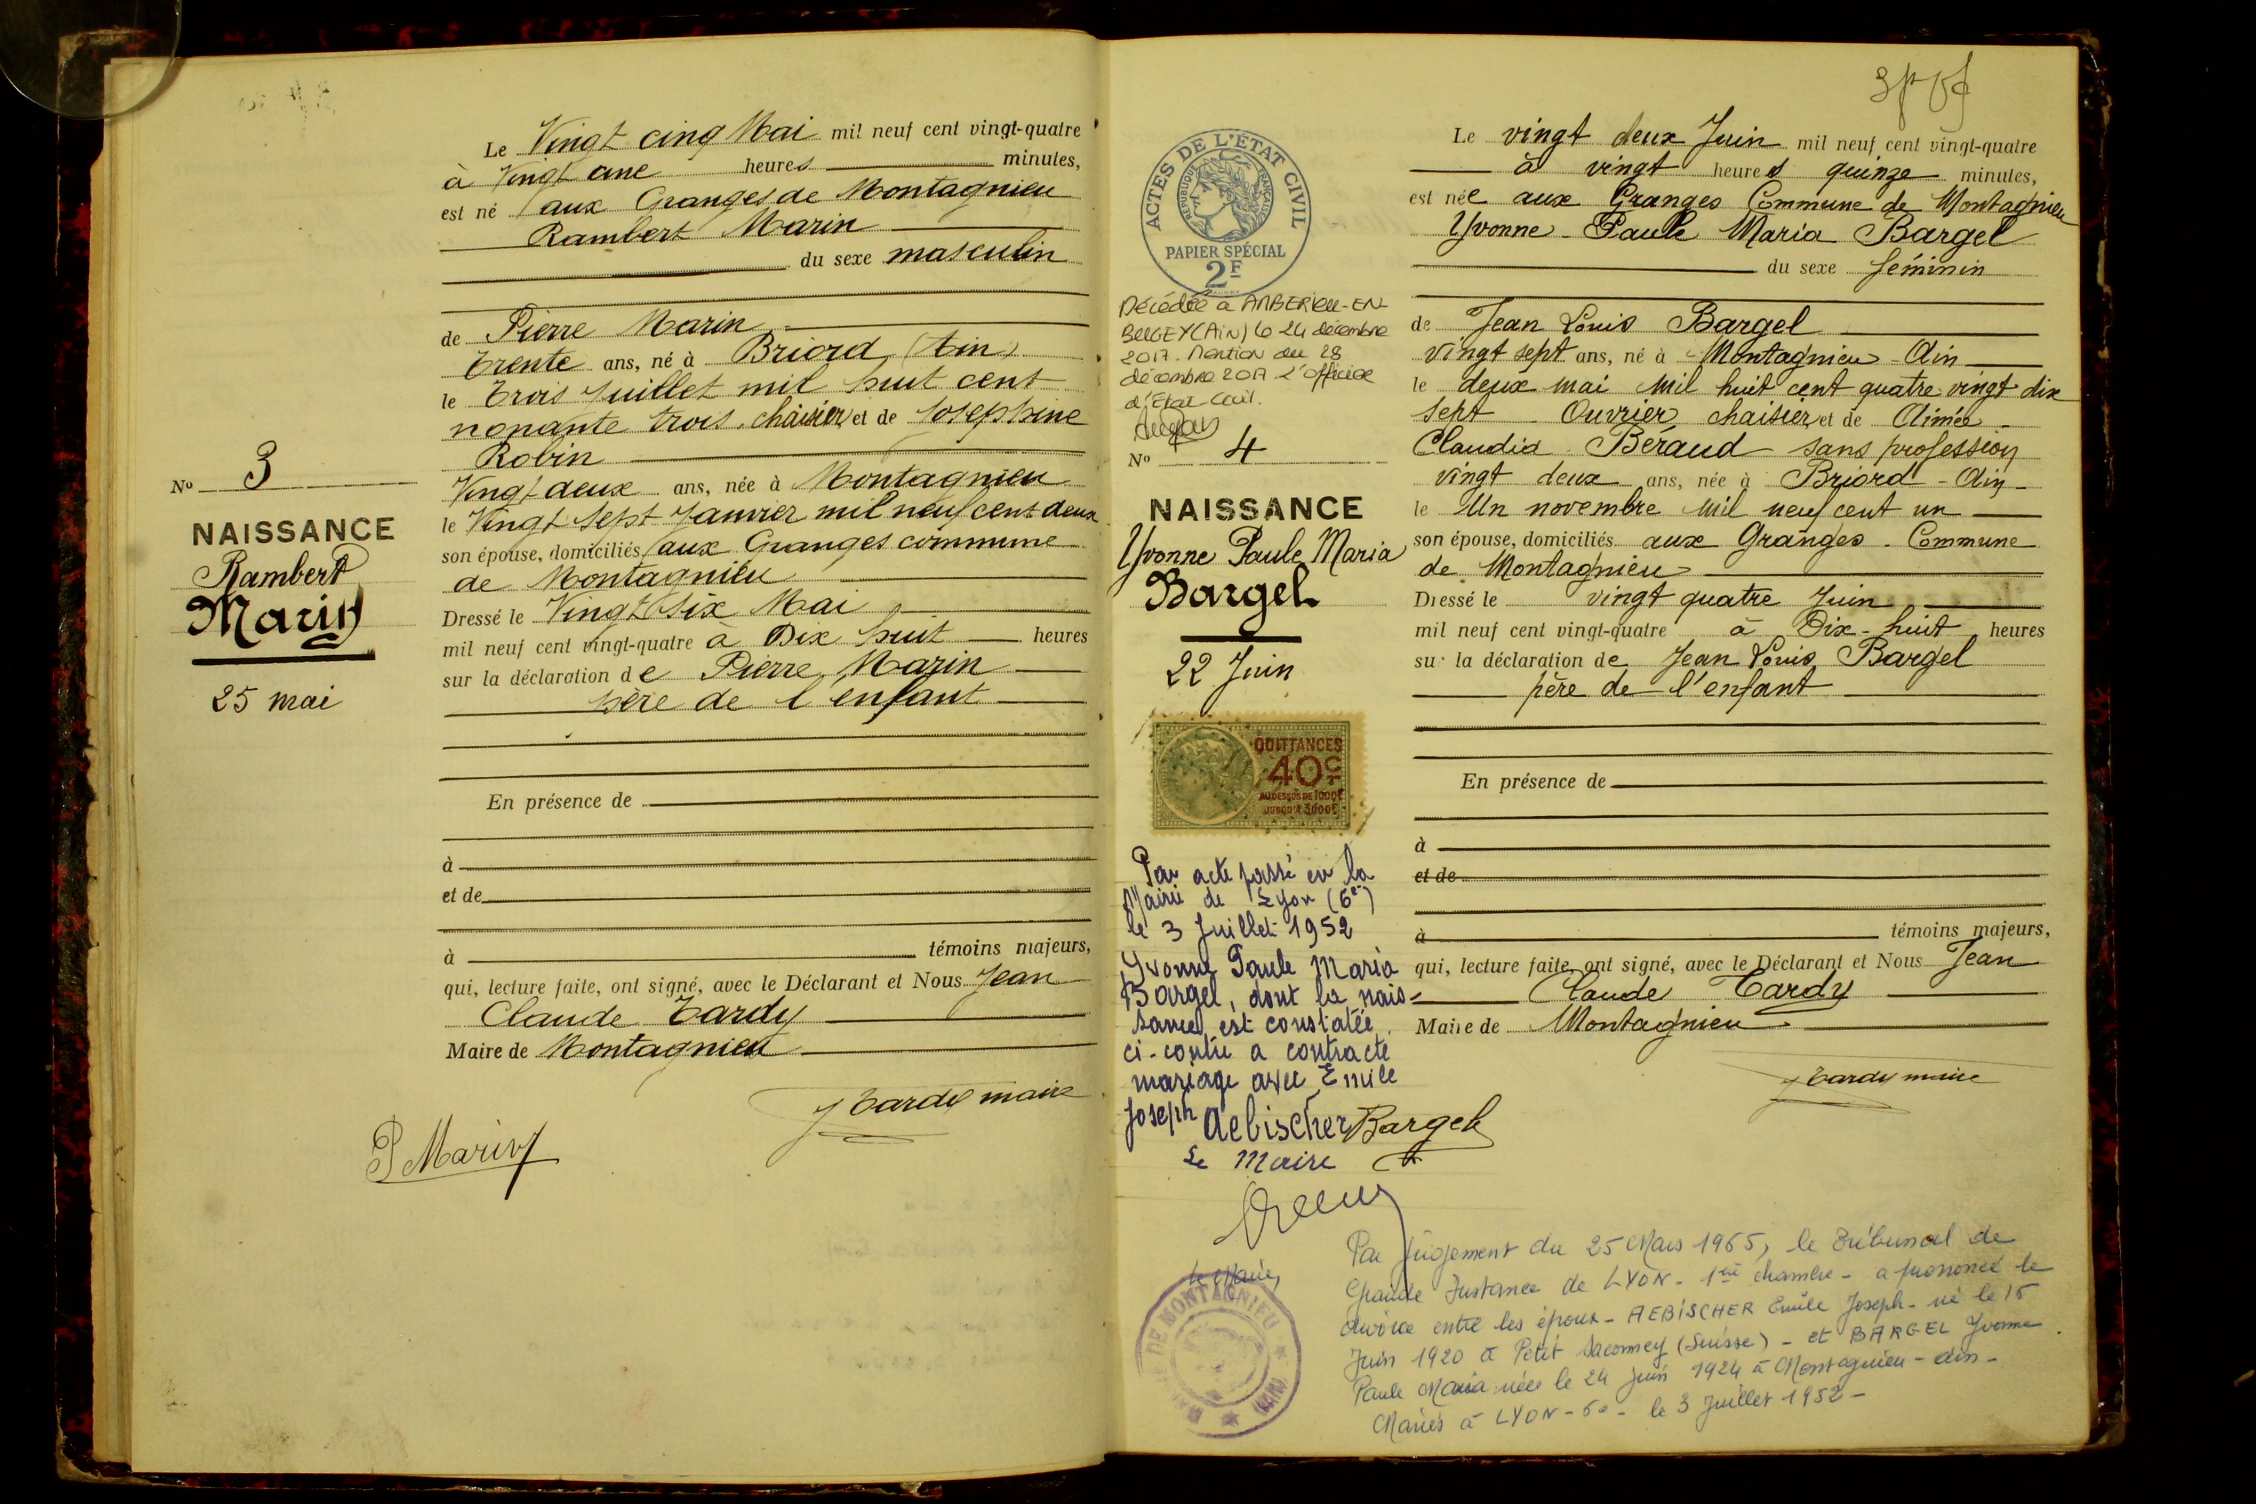 Le Vingt cinq Mai mil neuf cent vingt-quatre
à Vingt une heures minutes,
est né aux Granges de Montagnieu
Rambert Marin
du sexe masculin
de Pierre Marin
trente ans, né à Briord (Ain)
le trois Juillet mil huit cent
nonante trois, chaisier et de Josephine
Robin
Vingt deux ans, née à Montagnieu
le Vingt Sept Janvier mil neuf cent deux
son épouse, domiciliés aux Granges commune
de Montagnieu
Dressé le Vingt Six Mai
mil neuf cent vingt-quatre à Dix huit heures
sur la déclaration de Pierre Marin
père de l'enfant
En présence de
à
et de
à témoins majeurs,
qui, lecture faite, ont signé, avec le Déclarant et Nous Jean
Claude Tardy
Maire de Montagnieu
Tardy maire
P Marin
No 3
NAISSANCE
Rambert
Marin
25 mai
ACTES DE L'ÉTAT CIVIL
RÉPUBLIQUE FRANÇAISE
PAPIER SPÉCIAL
2F
Décédée à AMBERIEU-EN-
BUGEY (AIN) le 24 décembre
2017. Mention du 28
décembre 2017 L'officier
d'Etat Civil.
No 4
NAISSANCE
Yvonne Paule Maria
Bargel
22 Juin
QUITTANCES
40c
AU DESSUS DE 1000F
JUSQU'A 3000F
Par acte passé en la
Mairie de Lyon (6e)
le 3 Juillet 1952
Yvonne Paule Maria
Bargel, dont la nais-
sance est constatée
ci-contre a contracté
mariage avec Emile
Joseph Aebischer
Le Maire
Le Maire,
MAIRIE DE MONTAGNIEU
(AIN)
Le vingt deux Juin mil neuf cent vingt-quatre
à vingt heures quinze minutes,
est née aux Granges Commune de Montagnieu
Yvonne Paule Maria Bargel
du sexe féminin
de Jean Louis Bargel
vingt sept ans, né à Montagnieu Ain
le deux mai mil huit cent quatre vingt dix
sept Ouvrier chaisier et de Aimée
Claudia Béraud sans profession
vingt deux ans, née à Briord - Ain
le Un novembre mil neuf cent un
son épouse, domiciliés aux Granges Commune
de Montagnieu
Dressé le vingt quatre Juin
mil neuf cent vingt-quatre à Dix-huit heures
sur la déclaration de Jean Louis Bargel
père de l'enfant
En présence de
à
et de
à témoins majeurs,
qui, lecture faite, ont signé, avec le Déclarant et Nous Jean
Claude Tardy
Maire de Montagnieu
Tardy maire
Bargel
Par jugement du 25 Mars 1965, le Tribunal de
Grande Instance de LYON - 1ère chambre - a prononcé le
divorce entre les époux - AEBISCHER Emile Joseph - né le 15
Juin 1920 à Petit Saconney (Suisse) - et BARGEL Yvonne
Paule Maria née le 24 juin 1924 à Montagnieu - Ain -
Mariés à LYON - 6e - le 3 Juillet 1952 -